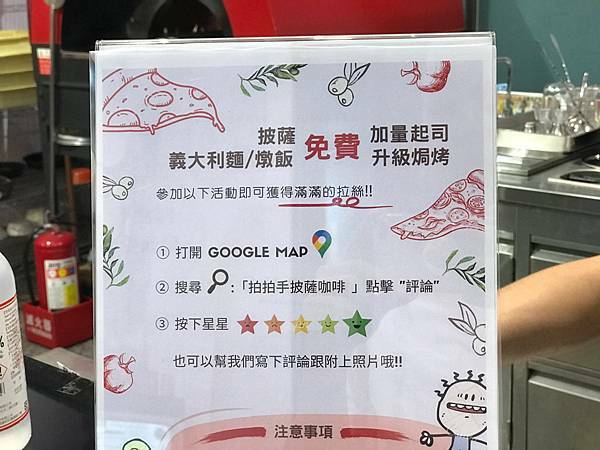 披薩 免費 加量起司
義大利麵/燉飯 升級焗烤
參加以下活動即可獲得滿滿的拉絲!!
① 打開 GOOGLE MAP
② 搜尋 :「拍拍手披薩咖啡 」點擊 "評論"
③ 按下星星
也可以幫我們寫下評論跟附上照片哦!!
注意事項
滅火器